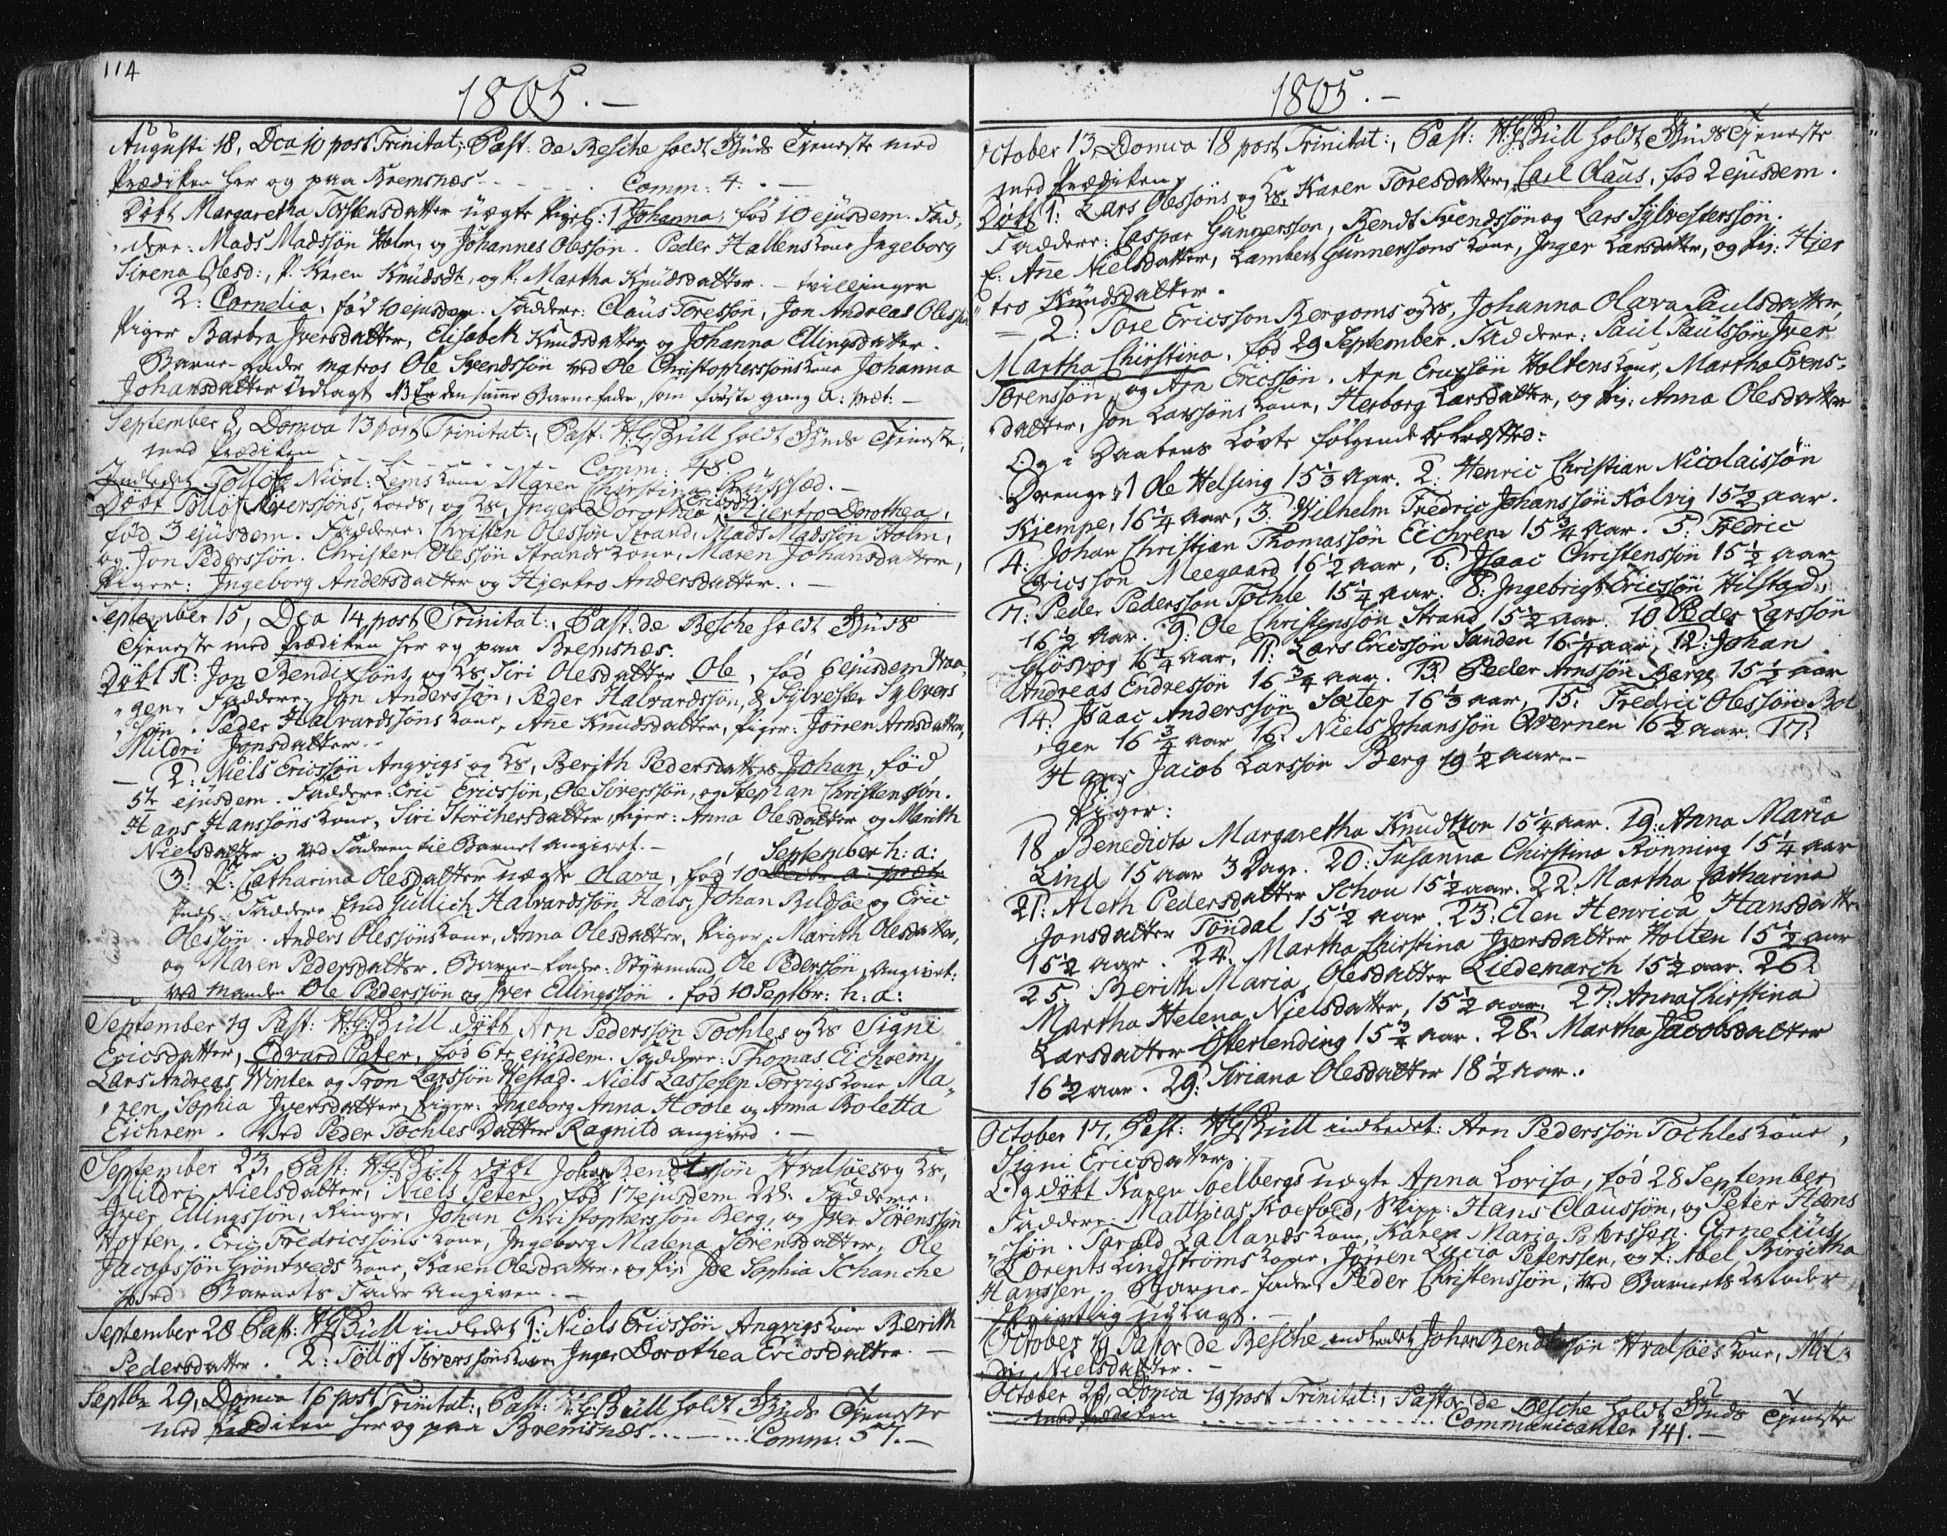 114
1805. —
Augusti 18, Dca 10 post Trinitat:, Past: de Besche holdt Guds Tjeneste med
Prædiken her og paa Bremsnæs - - - - - Comm: 4. —
Døbt Margaretha Torstensdatter uægte Pigeb: 1 Johanna, fød 10 ejusdem. Fad,
dere: Mads Madssøn Holm, og Johannes Olessøn. Peder Hallens Kone Ingeborg
Sirena Olesd:, P. Karen Knudsdt, og P. Martha Knudsdatter. — tvillinger
2: Cornelia, fød 10 ejusdem. Faddere: Claus Toressøn, Jon Andreas Oless
Piger Barbra Iversdatter, Elisabeth Knudsdatter og Johanna Ellingsdatter.
Barne-fader matros Ole Svendssøn ved Ole Christopherssøns Kone Johanna
Johansdatter Udlagt. NB Er den samme Barnefader, som første gang a: præt: —
September 8, Domca 13 post Trinitat:, Past: H.G. Büll holdt Guds Tjeneste,
med Prædiken - - - - Comm: 48
Indledet Nicol: Lems Kone Maren Christina Buschæd. —
Døbt Tolløf Siverssøns, og Ks, Inger Dorothea Ericsd, Hjertro Dorothea,
fød 3 ejusdem. Faddere: Christen Olessøn Strand, Mads Madssøn Holm,
og Jon Pederssøn. Christen Olessøn Strands Kone, Maren Johansdatter,
Piger: Ingeborg Andersdatter og Hjertro Andersdatter. —
September 15, Dca 14 post Trinitat:, Past: de Besche holdt Guds
Tjeneste med Prædiken her og paa Bremsnæs.
Døbt 1: Jon Bendixsøns og Ks Siri Olesdatter Ole, fød 6 ejusdem Waa,
gen, Faddere, Jon Anderssøn, Peder Halvardssøn, & Sylvester Sylvers
søn. Peder Halvardssøns Kone, Ane Knudsdatter, Piger: Jørren Arnsdatter,
Mildri Jonsdatter.
— 2: Niels Ericssøn Angvigs og Ks, Berith Pedersdatter Johan, fød
5te ejusdem. Faddere: Eric Ericssøn, Ole Siverssøn, og Stephan Christenssøn.
Hans Hanssøns Kone, Siri Storchersdatter, Piger: Anna Olesdatter og Marith
Nielsdatter. Ved Faderen til Barnet angivet. —
September h: a:
3: P: Catharina Olesdatter uægte Olava, fød 10 Decbr a: præt:
Indf. Faddere Erud Gullich Halvardssøn Hals, Johan Bildsøe og Eric
Olessøn. Anders Olessøns Kone, Anna Olesdatter, Piger: Marith Olesdatter,
og Maren Pedersdatter. Barne-fader: Styrmand Ole Pederssøn, Angivet:
ved Manden Ole Pederssøn og Iver Ellingssøn. fød 10 Septbr: h: a:
September 19 Past: H.G. Büll døbt Arn Pederssøn Tochles og Ks Signi
Ericsdatter, Edvard Peter, fød 6te ejusdem. Faddere: Thomas Eichrem,
Lars Andreas Winter og Tron Larssøn Hestad. Niels Lassesen Torvigs Kone Ma,
ren Sophia Iversdatter, Piger: Ingeborg Anna Hoole og Anna Boletta
Eichrem. Ved Peder Tochles Datter Ragnild angived. —
September 23, Past: H.G. Büll døbt Johan Bendtssøn Hvalsøes og Ks,
Mildri Nielsdatter, Niels Peter, fød 17 ejusdem Faddere:
Iver Ellingssøn, Ringer, Johan Christopherssøn Berg, og Iver Sørenssøn
Hoften. Eric Fredricssøns Kone, Ingeborg Malena Sørensdatter, Ole
Jacobssøn Grøntveds Kone, Karen Olesdatter og Pi: Ide Sophia Schanche
Ved Barnets Fader Angiven. —
September 28 Past: H.G. Büll indledet 1: Niels Ericssøn Angvigs Kone Berith
Pedersdatter. 2: Tølløf Siverssøns Kone Inger Dorothea Ericsdatter. —
Septbr 29, Domca 16 post Trinitat:, Past: H.G. Büll holdt Guds Tjeneste
med Prædiken her og paa Bremsnæs - - - - Comm: 57. —
1805. —
October 13, Domca 18 post Trinitat:, Past: H.G. Büll holdt Guds Tjeneste
med Prædiken,
Døbt 1: Lars Olessøns og Ks, Karen Toresdatter, Carl Claus, fød 2 ejusdem.
Faddere: Caspar Gunnerssøn, Bendt Svendssøn og Lars Sylvesterssøn.
E: Ane Nielsdatter, Lambert Gunnerssøns Kone, Inger Larsdatter, og Pi: Hjer
tro Knudsdatter.
— 2: Tore Ericssøn Bergoms og Ks, Johanna Olava Paulsdatter,
Martha Christina, fød 29 September. Faddere: Paul Paulssøn, Iver
Sørenssøn, og Arn Ericssøn. Arn Ericssøn Holtens Kone, Martha Evens-
datter, Jon Larssøns Kone, Herborg Larsdatter, og Pi: Anna Olesdatter
Og i Daabens Løvte følgende bekræfted:
Drenge: 1 Ole Helsing 15 1/3 Aar. 2: Henric Christian Nicolaissøn
Kjempe, 16 1/4 Aar, 3. Wilhelm Fredric Johanssøn Kolvig 15 1/2 Aar.
4: Johan Christian Thomassøn Eichrem 15 3/4 Aar. 5: Fredric
Ericssøn Meegaard 16 1/2 Aar, 6: Isaac Christenssøn 15 1/2 Aar
7: Peder Pederssøn Tochle 15 1/4 Aar. 8: Ingebrigt Ericssøn Hilstad
16 1/2 Aar. 9: Ole Christenssøn Strand 15 1/2 Aar. 10 Peder Larssøn
Gløsvog 16 1/4 Aar, 11: Lars Ericssøn Sanden 16 1/4 Aar, 12: Johan
Andreas Endressøn 16 3/4 Aar. 13: Peder Arnssøn Berge 15 1/2 Aar
14: Isaac Anderssøn Sæter 16 1/3 Aar, 15: Fredric Olessøn Bol
gen 16 3/4 Aar 16: Niels Johanssøn Qvernen 16 1/2 Aar. 17:
Hans Jacob Larssøn Berg 19 1/2 Aar. —
Piger:
18 Benedicta Margaretha Knudtzon 15 1/4 Aar. 19: Anna Maria
Lind 15 Aar 3 Dage. 20: Susanna Christina Rønning 15 1/4 Aar
21: Aleth Pedersdatter Schou 15 1/2 Aar. 22 Martha Catharina
Jonsdatter Tøndal 15 1/2 Aar. 23: Elen Henrica Hansdatter
15 1/2 Aar. 24. Martha Christina Iversdatter Holten 15 1/2 Aar
25: Berith Maria Olesdatter Liedemarch 15 1/2 Aar. 26:
Martha Helena Nielsdatter, 15 1/2 Aar. 27: Anna Christina
Larsdatter Østerlending 15 3/4 Aar. 28. Martha Jacobsdatter
16 1/2 Aar. 29: Siriana Olesdatter 18 1/2 Aar.
October 17, Past: H.G. Büll indledet: Arn Pederssøn Tochles Kone,
Signi Ericsdatter.
Og døbt Karen Soelbergs uægte Anna Lovisa, fød 28 September,
Faddere: Matthias Koefoed, Skipp: Hans Claussøn, og Peter Hans
søn. Tarald Lallands Kone, Karen Maria Peterssen. Cornelius
Lorents Lindstrøms Kone, Jørren Lucia Peterssen, og P. Abel Birgitha
Hanssen. Barne-fader, Peder Christenssøn, Ved Barnets Moder
skrivtlig udlagt. —
October 19 Pastor de Besche indledet Johan Bendtssøn Hvalsøes Kone, Mil,
dri Nielsdatter. —
October 20, Domca 19 post Trinitat:, Pastor de Besche holdt Guds Tjeneste
med Prædiken - - - - - - Communicanter 141. —